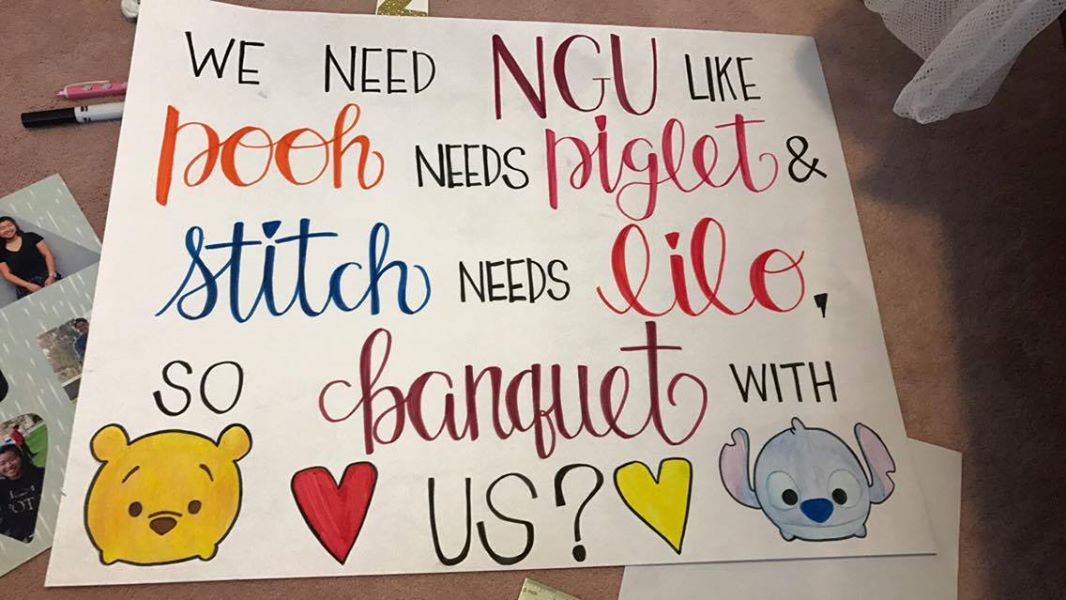 WE NEED NGU LIKE
pooh NEEDS piglet &
stitch NEEDS lilo,
SO banquet WITH
US?